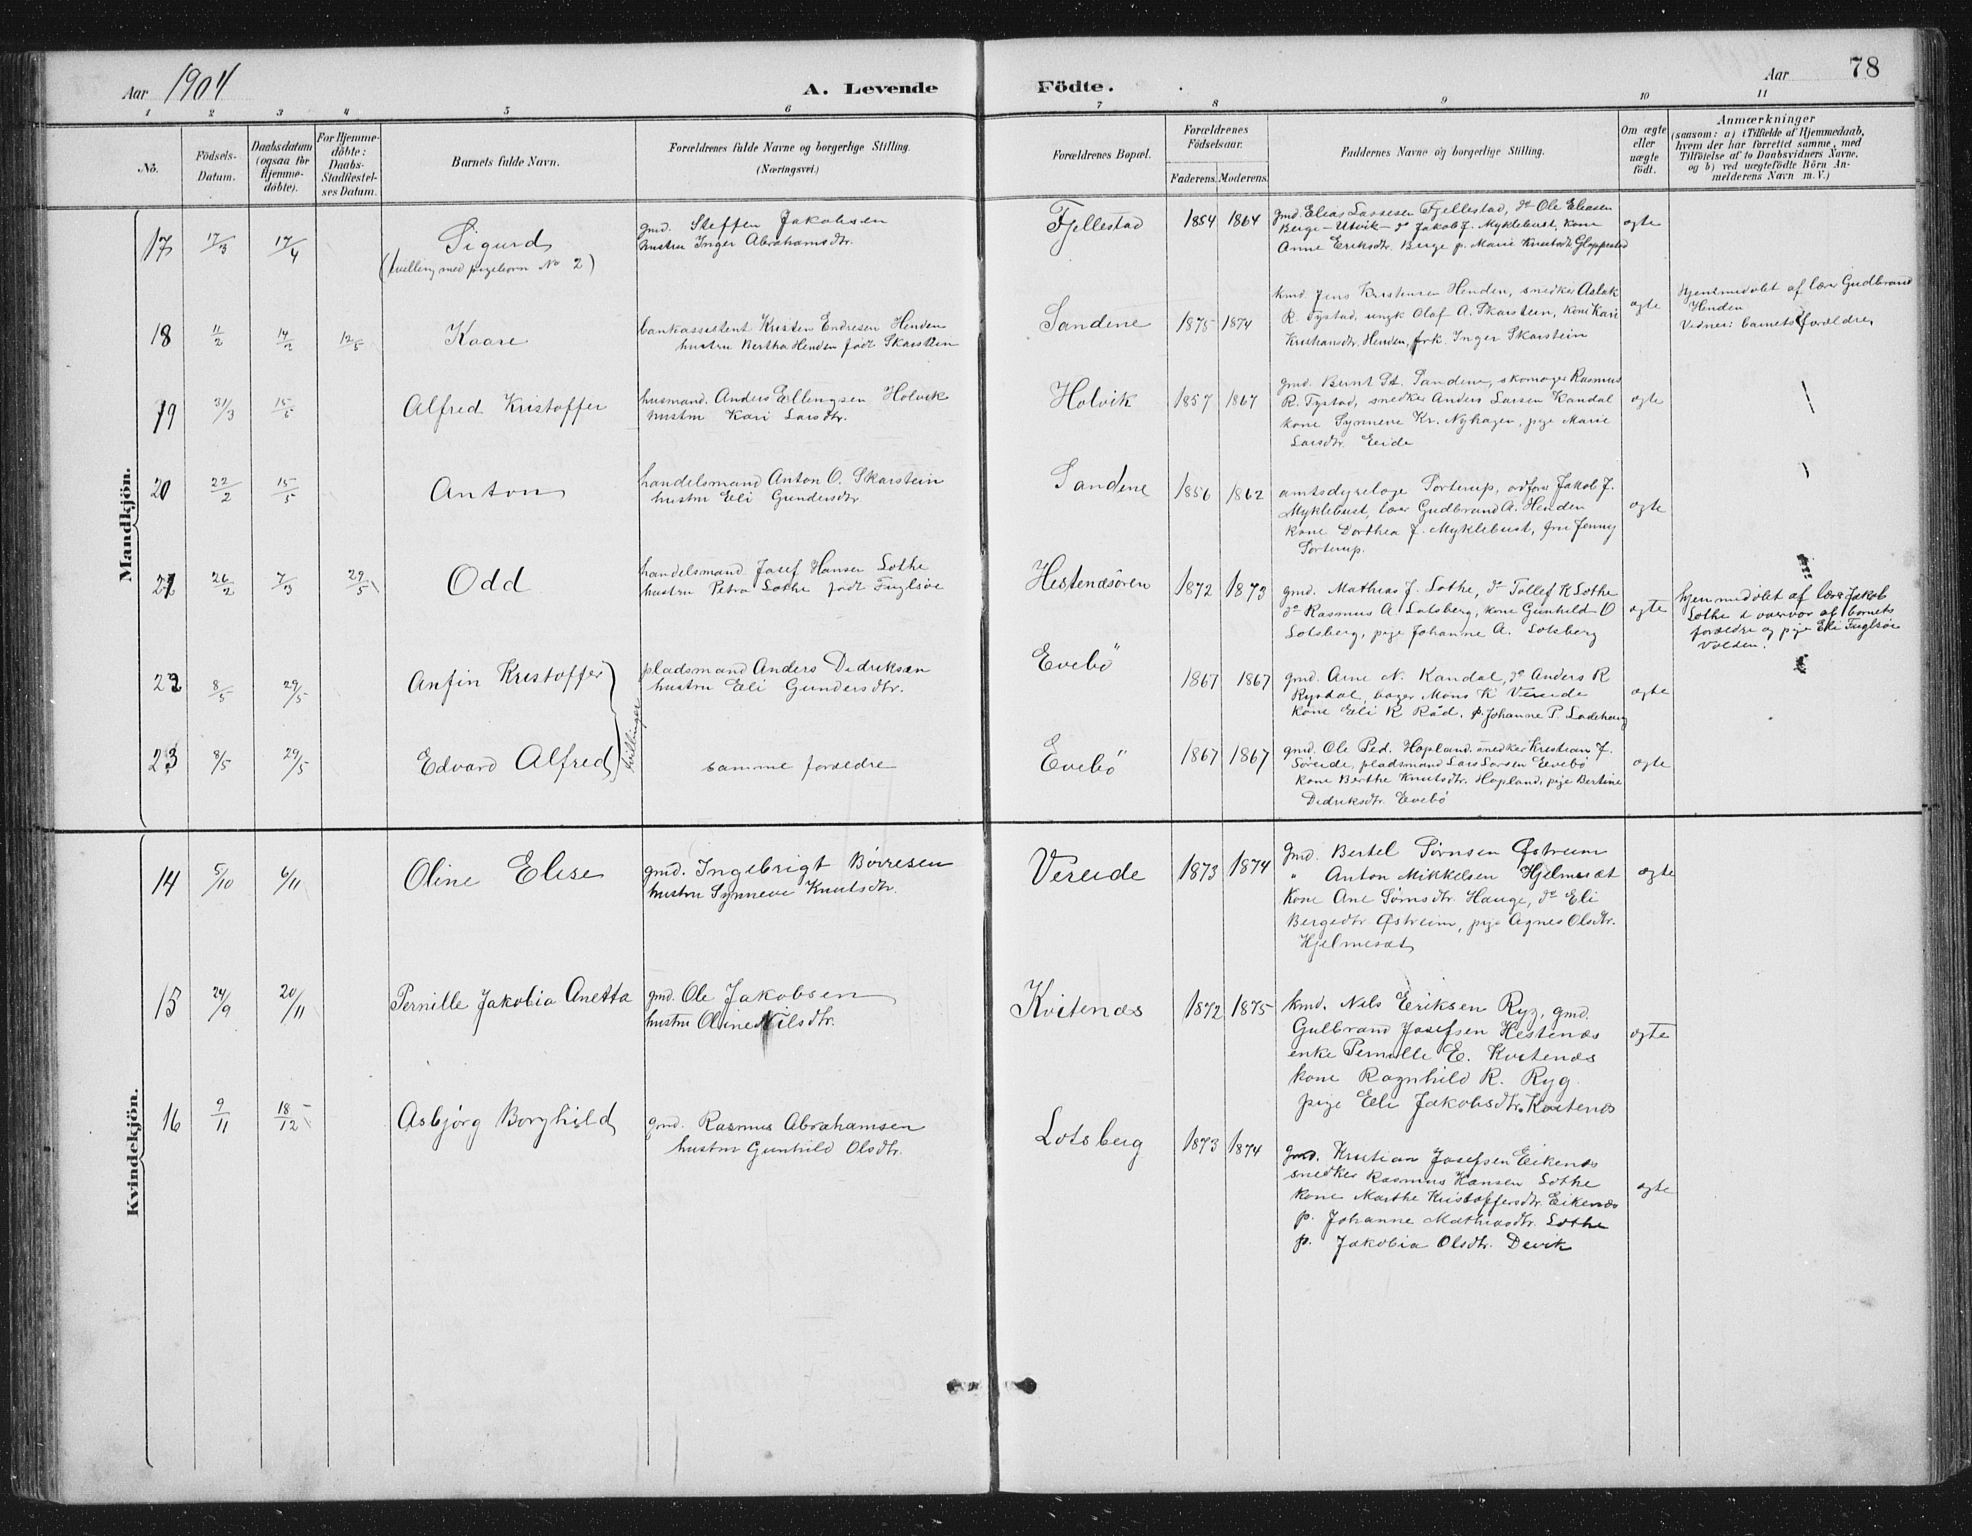 Aar 1904
A. Levende Födte.
Aar
78
1 2 3 4 5 6 7 8 9 10 11
No.
Födsels-Datum.
Daabsdatum (ogsaa for Hjemme-döbte).
For Hjemme-döbte: Daabs-Stadfæstel-ses Datum.
Barnets fulde Navn.
Forældrenes fulde Navne og borgerlige Stilling.
(Næringsvei.)
Forældrenes Bopæl.
Forældrenes Födselsaar.
Faderens. Moderens.
Faddernes Navne og borgerlige Stilling.
Om ægte eller uægte födt.
Anmærkninger
(saasom: a) i Tilfælde af Hjemmedaab,
hvem der har forrettet samme, med
Tilföielse af to Daabsvidners Navne,
og b) ved uægtefödte Börn An-
melderens Navn m. V.)
Mandkjön.
17 17/3 17/4 Sigurd
(tvilling med pigebarn No 2)
gmd. Steffen Jakobsen
hustru Inger Abrahamsdtr.
Fjellestad 1854 1864
gmd. Elias Lassesen Fjellestad, do Ole Eliasen
Berge - Utvik - do Jakob J. Myklebust, kone
Anne Eriksdtr. Berge p. Marie Knutsdtr Gloppestad
ægte
18 11/2 14/2 12/5 Kaare
bankassistent Kristen Endresen Henden
hustru Bertha Henden født Skarstein
Sandene 1875 1874
kmd. Jens Kristensen Henden, snedker Aslak
R. Tystad, ungk Olaf A. Skarstein, kone Kari
Kristiansdtr. Henden, frk. Inger Skarstein
ægte
Hjemmedøbt af lærer Gudbrand
Henden
Vidner: barnets forældre
19 31/3 15/5 Alfred Kristoffer
husmand. Anders Ellengsen Holvik
hustru Kari Larsdtr.
Holvik 1857 1867
gmd. Bernt St. Sandene, skomager Rasmus
R. Tystad, snedker Anders Larsen Kandal
kone Synneve Kr. Nyhagen, pige Marie
Larsdtr. Eide
ægte
20 22/2 15/5 Anton
handelsmand Anton O. Skarstein
hustru Eli Gundersdtr
Sandene 1856 1862
amtsdyrelæge Torterup, ordfører Jakob J.
Myklebust, lærer Gudbrand A. Henden
kone Dorthea J. Myklebust, fru Jenny
Torterup.
ægte
21 26/2 7/3 29/5 Odd
handelsmand Josef Hansen Lothe
hustru Petra Lothe født Fuglsøe
Hestenæsören 1872 1873
gmd. Mathias J. Lothe, do Tollef K Lothe
do Rasmus A Lotsberg, kone Gunhild O
Lotsberg, pige Johanne A. Lotsberg
ægte
hjemmedøbt af lærer Jakob
Lothe i overvær af barnets
forældre og pige Eli Fuglsøe
Volden.
22 8/5 29/5 Anfin Kristoffer
pladsmand Anders Didriksen
hustru Eli Gundersdtr.
Evebö 1867 1867
gmd. Arne N. Kandal, do Anders R
Rysdal, bager Mons K Vereide
kone Eli R Rød. p. Johanne P. Ladehaug
ægte
tvillinger
23 8/5 29/5 Edvard Alfred
samme forældre
Evebö 1867 1867
gmd. Ole Ped. Hopland. snedker Kristian J.
Søreide, pladsmand Lars Larsen Evebö
kone Berthe Knutsdtr. Hopland, pige Bertine
Didriksdtr. Evebö
ægte
Kvindekjön.
14 5/10 6/11 Oline Elise
gmd. Ingebrigt Börresen
hustru Synneve Knutsdtr.
Vereide 1873 1874
gmd. Bertel Sørnsen Østreim
" Anton Mikkelsen Hjelmesæt
kone Ane Sørnsdtr. Hauge, do Eli
Bergedtr Østreim, pige Agnes Olsdtr.
Hjelmesæt
ægte
15 24/9 20/11 Pernille Jakobia Anetta
gmd. Ole Jakobsen
hustru Oline Nilsdtr.
Kvitenæs 1872 1875
kmd. Nils Eriksen Ryg, gmd.
Gulbrand Josefsen Hestenæs
enke Pernille E. Kvitenæs
kone Ragnhild R. Ryg
pige Eli Jakobsdtr. Kvitenæs
ægte
16 9/11 18/12 Asbjørg Borghild
gmd. Rasmus Abrahamsen
hustru Gunhild Olsdtr.
Lotsberg 1873 1874
gmd. Kristian Josefsen Eikenæs
snedker Rasmus Hansen Lothe
kone Marthe Kristoffersdtr. Eikenæs
p. Johanne Mathiasdtr. Lothe
p. Jakobia Olsdtr. Devik
ægte